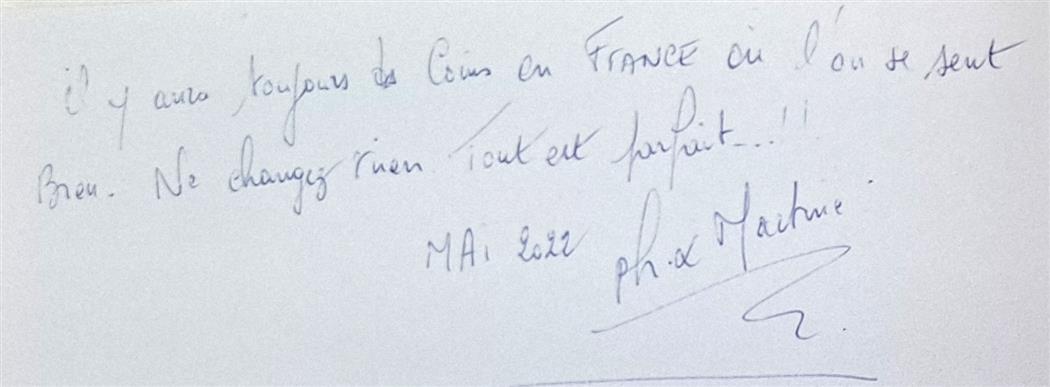 il y aura toujours des Coins en FRANCE où l'on se sent
Bien. Ne changez rien. Tout est parfait...!!
MAI 2022 Ph. & Martine